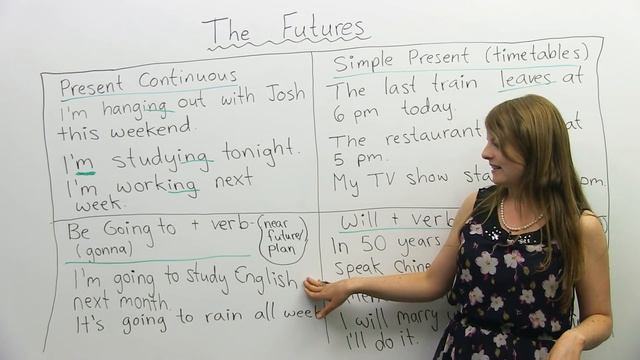 The Futures
Present Continuous
I'm hanging out with Josh
this weekend.
I'm studying tonight.
I'm working next
week.
Simple Present (timetables)
The last train leaves at
6 pm today.
The restaurant at
5 pm.
My TV show pm.
Be Going to + verb-
(gonna)
(near
future/
plan)
I'm going to study English
next month.
It's going to rain all
Will + verb
In 50 years
speak
I will marry
I'll do it.